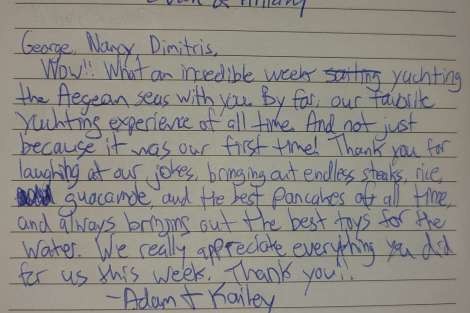 George, Nancy, Dimitris,
Wow!! What an incredible week sailing yachting
the Aegean seas with you. By far, our favorite
yachting experience of all time. And not just
because it was our first time! Thank you for
laughing at our jokes, bringing out endless steaks, rice,
guacamole, and the best pancakes of all time,
and always bringing out the best toys for the
water. We really appreciate everything you did
for us this week. Thank you!!
-Adam + Kailey